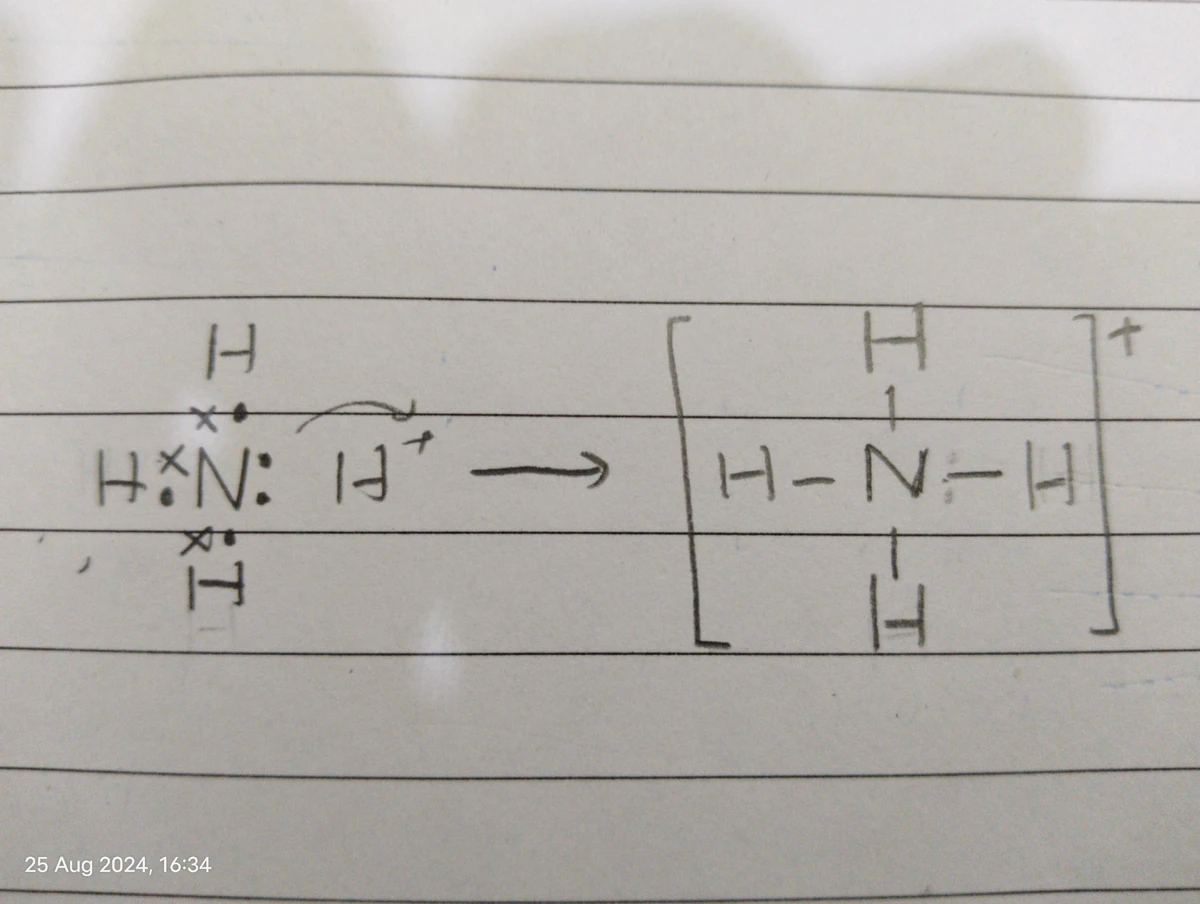 H H
x •
H x• N : H+ → [ H - N - H ]+
x •
H H
25 Aug 2024, 16:34